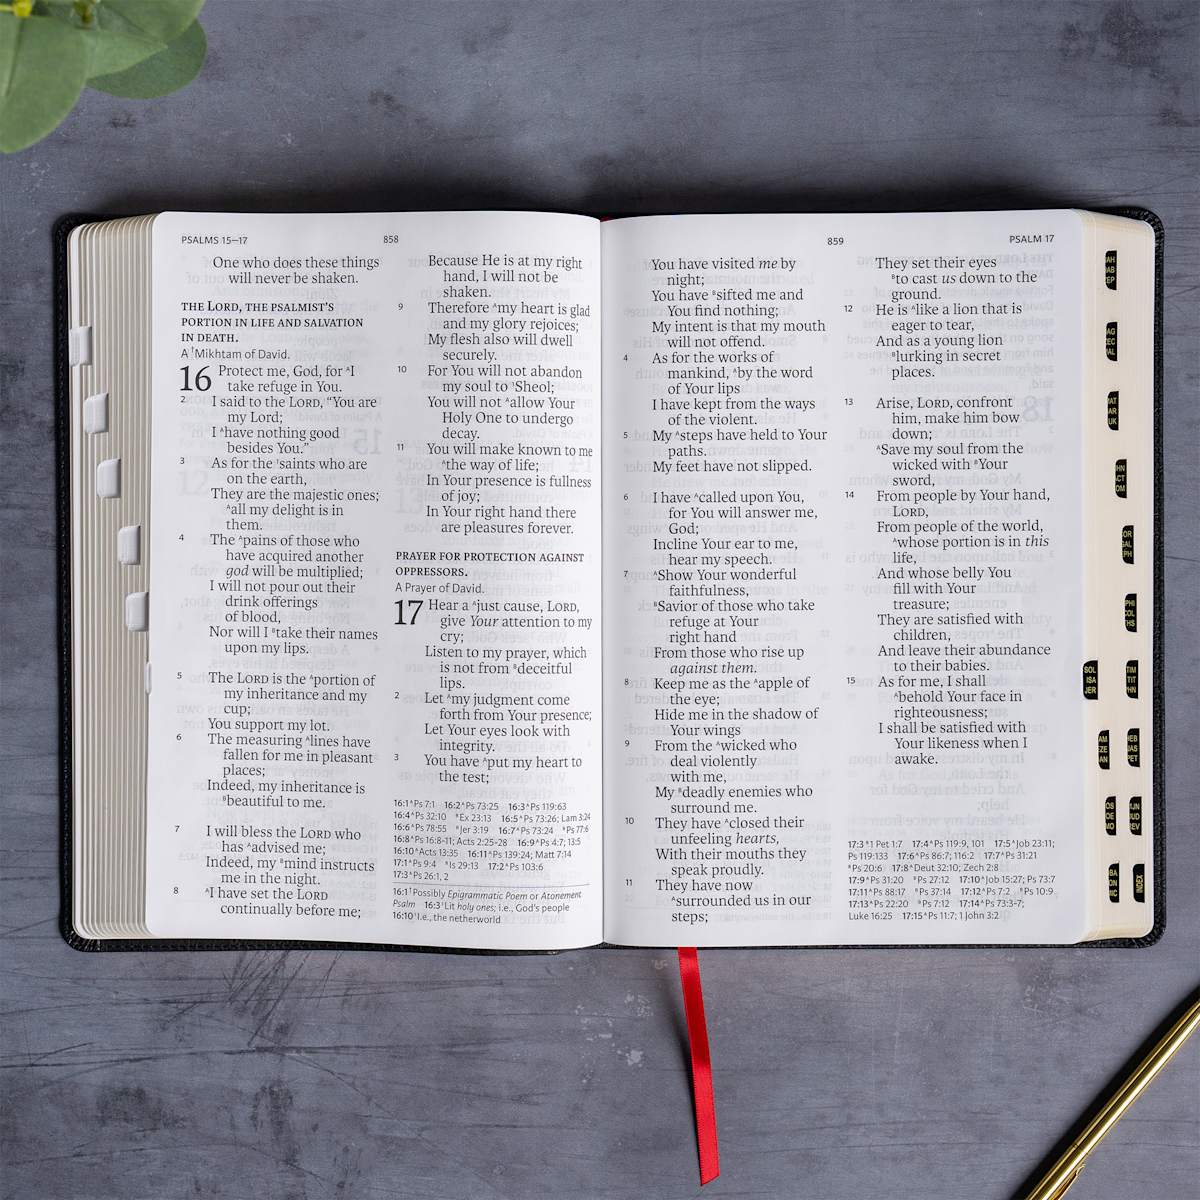 PSALMS 15–17
858
One who does these things
will never be shaken.
THE LORD, THE PSALMIST'S
PORTION IN LIFE AND SALVATION
IN DEATH.
A ¹Mikhtam of David.
16 Protect me, God, for ᴬI
take refuge in You.
2 I said to the LORD, "You are
my Lord;
I ᴬhave nothing good
besides You."
3 As for the ¹saints who are
on the earth,
They are the majestic ones;
ᴬall my delight is in
them.
4 The ᴬpains of those who
have acquired another
god will be multiplied;
I will not pour out their
drink offerings
of blood,
Nor will I ᴮtake their names
upon my lips.
5 The LORD is the ᴬportion of
my inheritance and my
cup;
You support my lot.
6 The measuring ᴬlines have
fallen for me in pleasant
places;
Indeed, my inheritance is
ᴮbeautiful to me.
7 I will bless the LORD who
has ᴬadvised me;
Indeed, my ᴮmind instructs
me in the night.
8 ᴬI have set the LORD
continually before me;
Because He is at my right
hand, I will not be
shaken.
9 Therefore ᴬmy heart is glad
and my glory rejoices;
My flesh also will dwell
securely.
10 For You will not abandon
my soul to ¹Sheol;
You will not ᴬallow Your
Holy One to undergo
decay.
11 You will make known to me
ᴬthe way of life;
In Your presence is fullness
of joy;
In Your right hand there
are pleasures forever.
PRAYER FOR PROTECTION AGAINST
OPPRESSORS.
A Prayer of David.
17 Hear a ᴬjust cause, LORD,
give Your attention to my
cry;
Listen to my prayer, which
is not from ᴮdeceitful
lips.
2 Let ᴬmy judgment come
forth from Your presence;
Let Your eyes look with
integrity.
3 You have ᴬput my heart to
the test;
16:1 ᴬPs 7:1 16:2 ᴬPs 73:25 16:3 ᴬPs 119:63
16:4 ᴬPs 32:10 ᴮEx 23:13 16:5 ᴬPs 73:26; Lam 3:24
16:6 ᴬPs 78:55 ᴮJer 3:19 16:7 ᴬPs 73:24 ᴮPs 77:6
16:8 ᴬPs 16:8-11; Acts 2:25-28 16:9 ᴬPs 4:7; 13:5
16:10 ᴬActs 13:35 16:11 ᴬPs 139:24; Matt 7:14
17:1 ᴬPs 9:4 ᴮIs 29:13 17:2 ᴬPs 103:6
17:3 ᴬPs 26:1, 2
16:1 ¹Possibly Epigrammatic Poem or Atonement
Psalm 16:3 ¹Lit holy ones; i.e., God's people
16:10 ¹I.e., the netherworld
859
PSALM 17
You have visited me by
night;
You have ᴮsifted me and
You find nothing;
My intent is that my mouth
will not offend.
4 As for the works of
mankind, ᴬby the word
of Your lips
I have kept from the ways
of the violent.
5 My ᴬsteps have held to Your
paths.
My feet have not slipped.
6 I have ᴬcalled upon You,
for You will answer me,
God;
Incline Your ear to me,
hear my speech.
7 ᴬShow Your wonderful
faithfulness,
ᴮSavior of those who take
refuge at Your
right hand
From those who rise up
against them.
8 Keep me as the ᴬapple of
the eye;
Hide me in the shadow of
Your wings
9 From the ᴬwicked who
deal violently
with me,
My ᴮdeadly enemies who
surround me.
10 They have ᴬclosed their
unfeeling hearts,
With their mouths they
speak proudly.
11 They have now
ᴬsurrounded us in our
steps;
They set their eyes
ᴮto cast us down to the
ground.
12 He is ᴬlike a lion that is
eager to tear,
And as a young lion
ᴮlurking in secret
places.
13 Arise, LORD, confront
him, make him bow
down;
ᴬSave my soul from the
wicked with ᴮYour
sword,
14 From people by Your hand,
LORD,
From people of the world,
ᴬwhose portion is in this
life,
And whose belly You
fill with Your
treasure;
They are satisfied with
children,
And leave their abundance
to their babies.
15 As for me, I shall
ᴬbehold Your face in
righteousness;
I shall be satisfied with
Your likeness when I
awake.
17:3 ᴮ1 Pet 1:7 17:4 ᴬPs 119:9, 101 17:5 ᴬJob 23:11;
Ps 119:133 17:6 ᴬPs 86:7; 116:2 17:7 ᴬPs 31:21
ᴮPs 20:6 17:8 ᴬDeut 32:10; Zech 2:8
17:9 ᴬPs 31:20 ᴮPs 27:12 17:10 ᴬJob 15:27; Ps 73:7
17:11 ᴬPs 88:17 ᴮPs 37:14 17:12 ᴬPs 7:2 ᴮPs 10:9
17:13 ᴬPs 22:20 ᴮPs 7:12 17:14 ᴬPs 73:3-7;
Luke 16:25 17:15 ᴬPs 11:7; 1 John 3:2
SOL
ISA
JER
TIM
TIT
INDEX